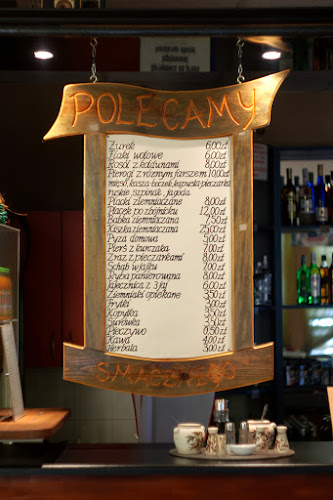 POLECAMY
Żurek 6,00zł
Flaki wołowe 6,00zł
Rosół z kołdunami 8,00zł
Pierogi z różnym farszem 10,00zł
mięso, kasza-boczek, kapusta, pieczarka
ruskie, szpinak, jagoda
Placki ziemniaczane 8,00zł
Placek po zbójnicku 12,00zł
Babka ziemniaczana 7,50zł
Kiszka ziemniaczana
Pyza domowa 5,00zł
Pierś z kurczaka 7,00zł
Zraz z pieczarkami 8,00zł
Schab w jajku 7,00zł
Ryba panierowana 6,00zł
Jajecznica z 3 jaj 6,00zł
Ziemniaki opiekane 3,50zł
Frytki 3,00zł
Kopytka 3,50zł
Surówka 3,50zł
Pieczywo 0,50zł
Kawa 4,00zł
Herbata 3,00zł
SMACZNEGO